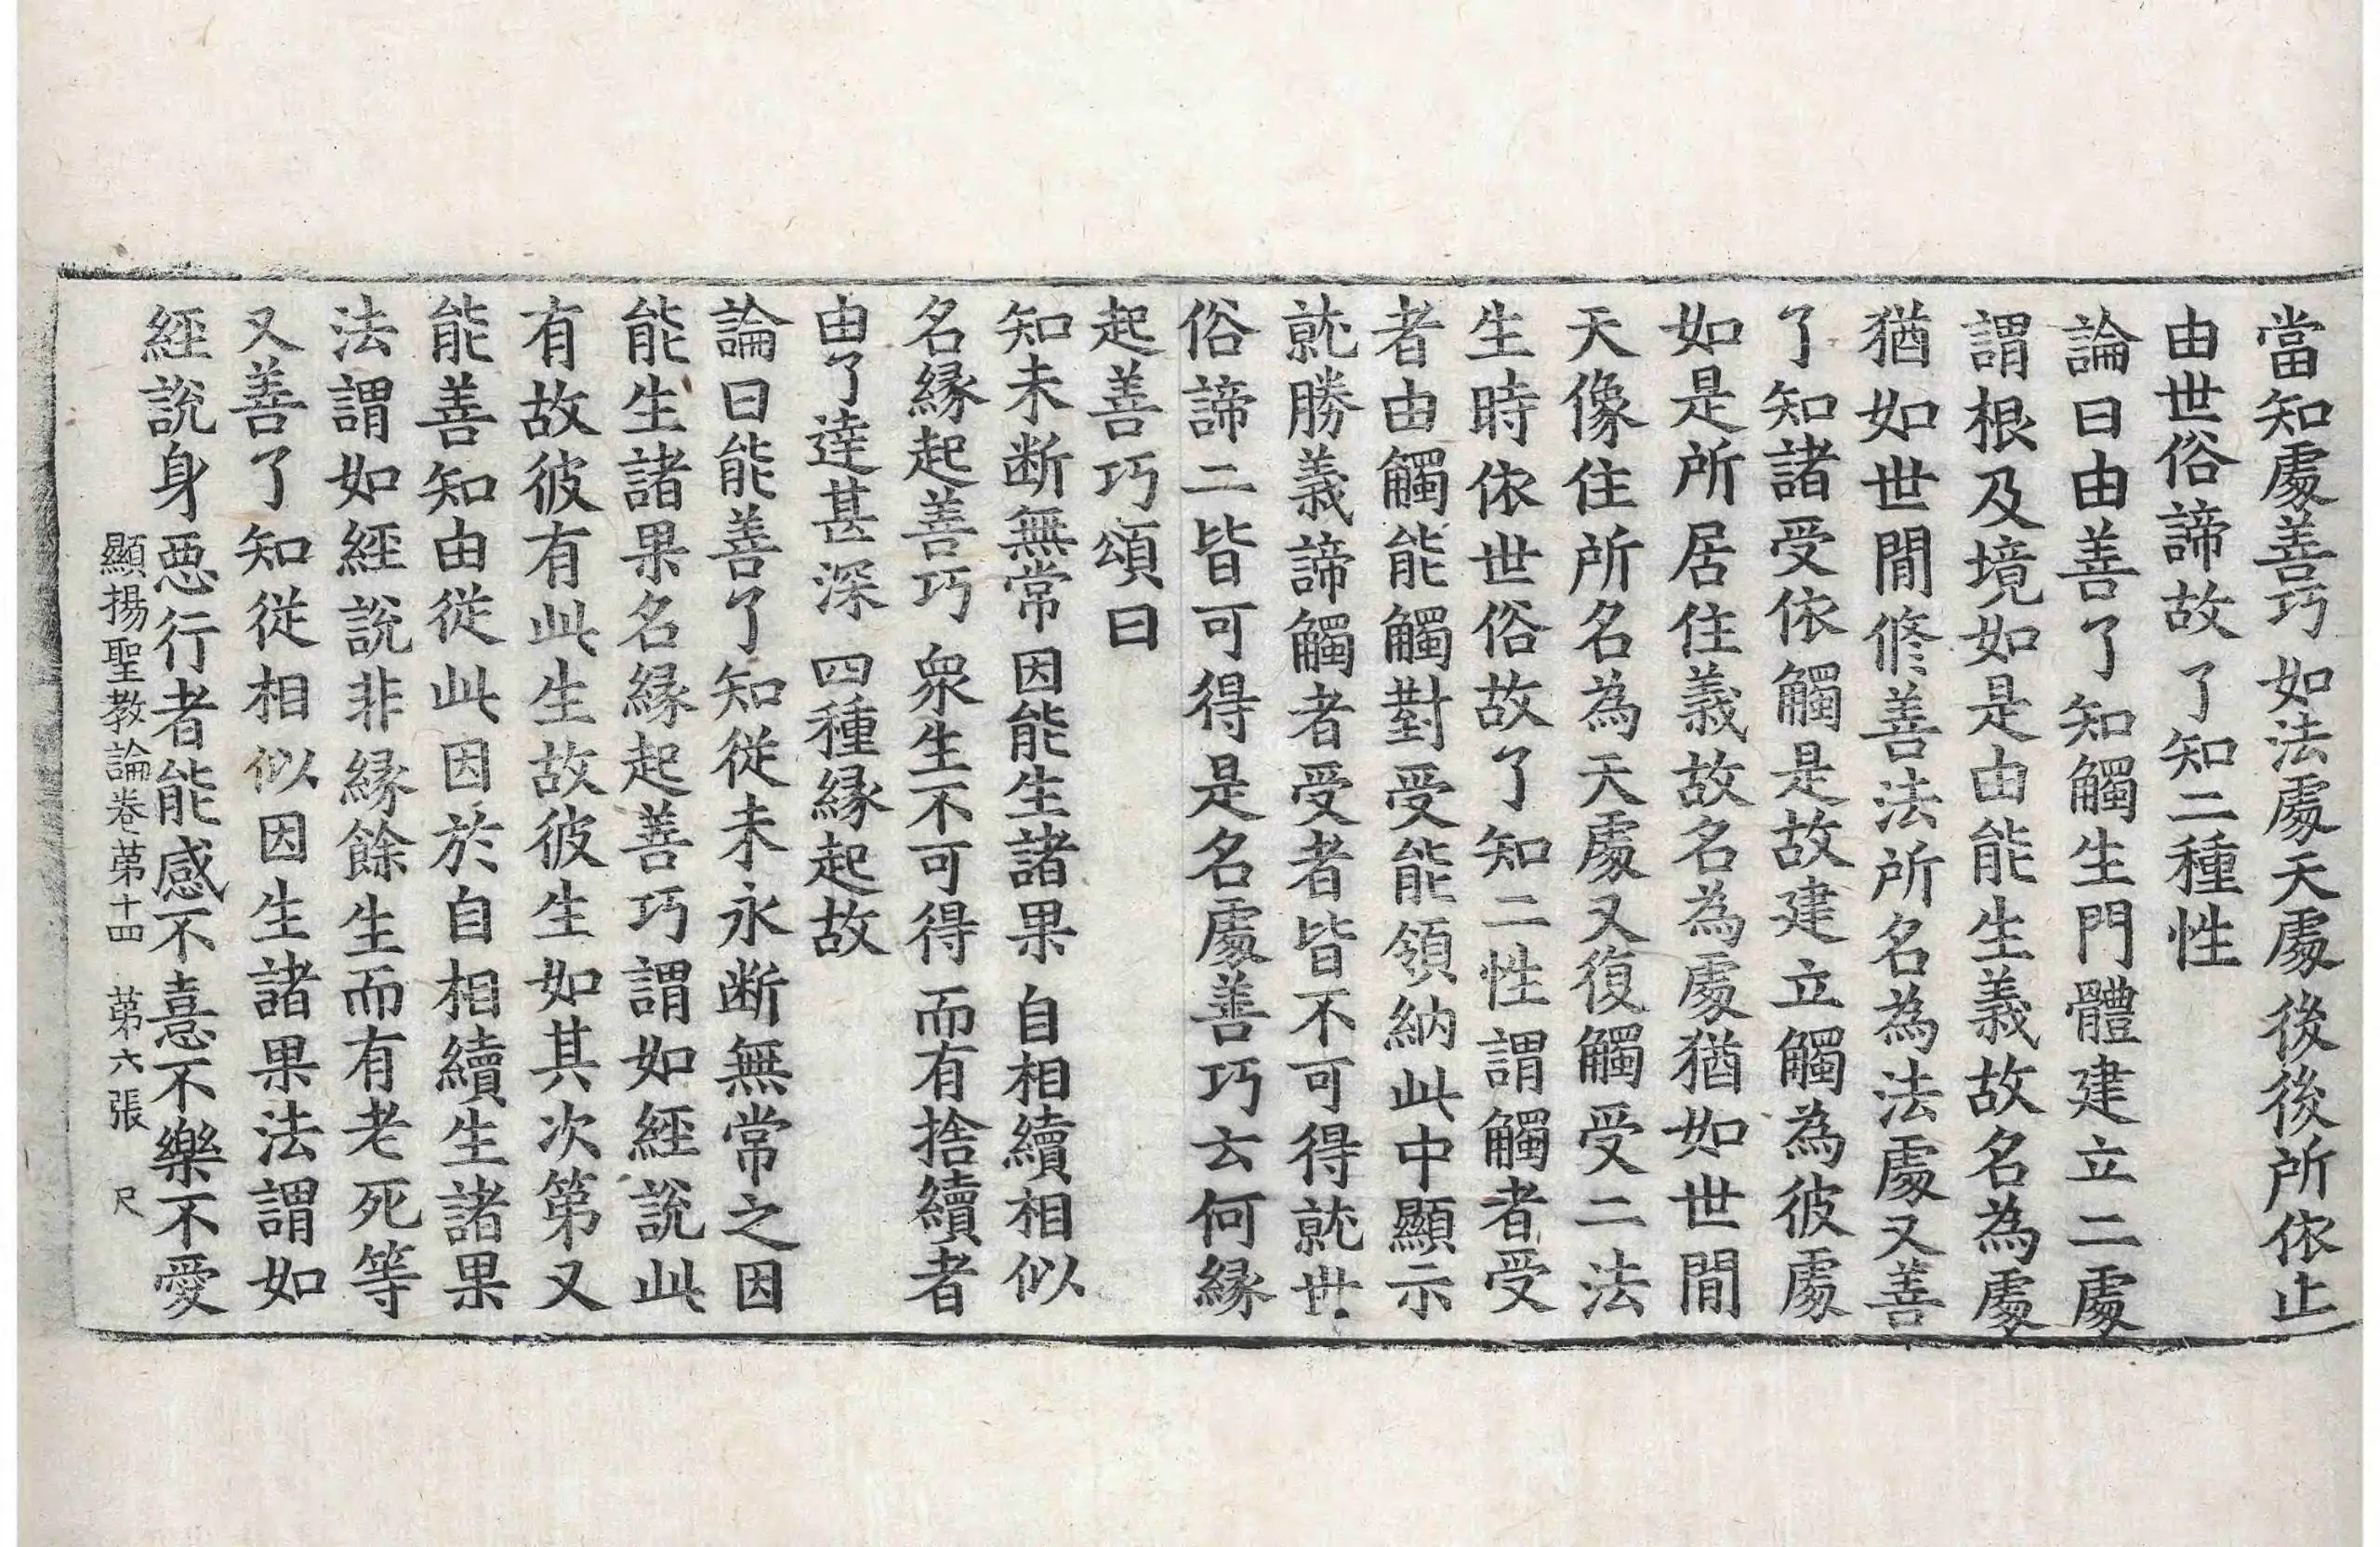 當知處善巧　如法處天處　後後所依止
由世俗諦故　了知二種性
論曰由善了知觸生門體建立二處
謂根及境如是由能生義故名為處
猶如世間修善法所名為法處又善
了知諸受依觸是故建立觸為彼處
如是所居住義故名為處猶如世間
天像住所名為天處又復觸受二法
生時依世俗故了知二性謂觸者受
者由觸能觸對受能領納此中顯示
就勝義諦觸者受者皆不可得就世
俗諦二皆可得是名處善巧云何縁
起善巧頌曰
知未断無常　因能生諸果　自相續相似
名縁起善巧　衆生不可得　而有捨續者
由了達甚深　四種縁起故
論曰能善了知從未永断無常之因
能生諸果名縁起善巧謂如經說此
有故彼有此生故彼生如其次第又
能善知由從此因於自相續生諸果
法謂如經說非縁餘生而有老死等
又善了知從相似因生諸果法謂如
經說身惡行者能感不憙不樂不愛
顯揚聖教論卷第十四　第六張　尺